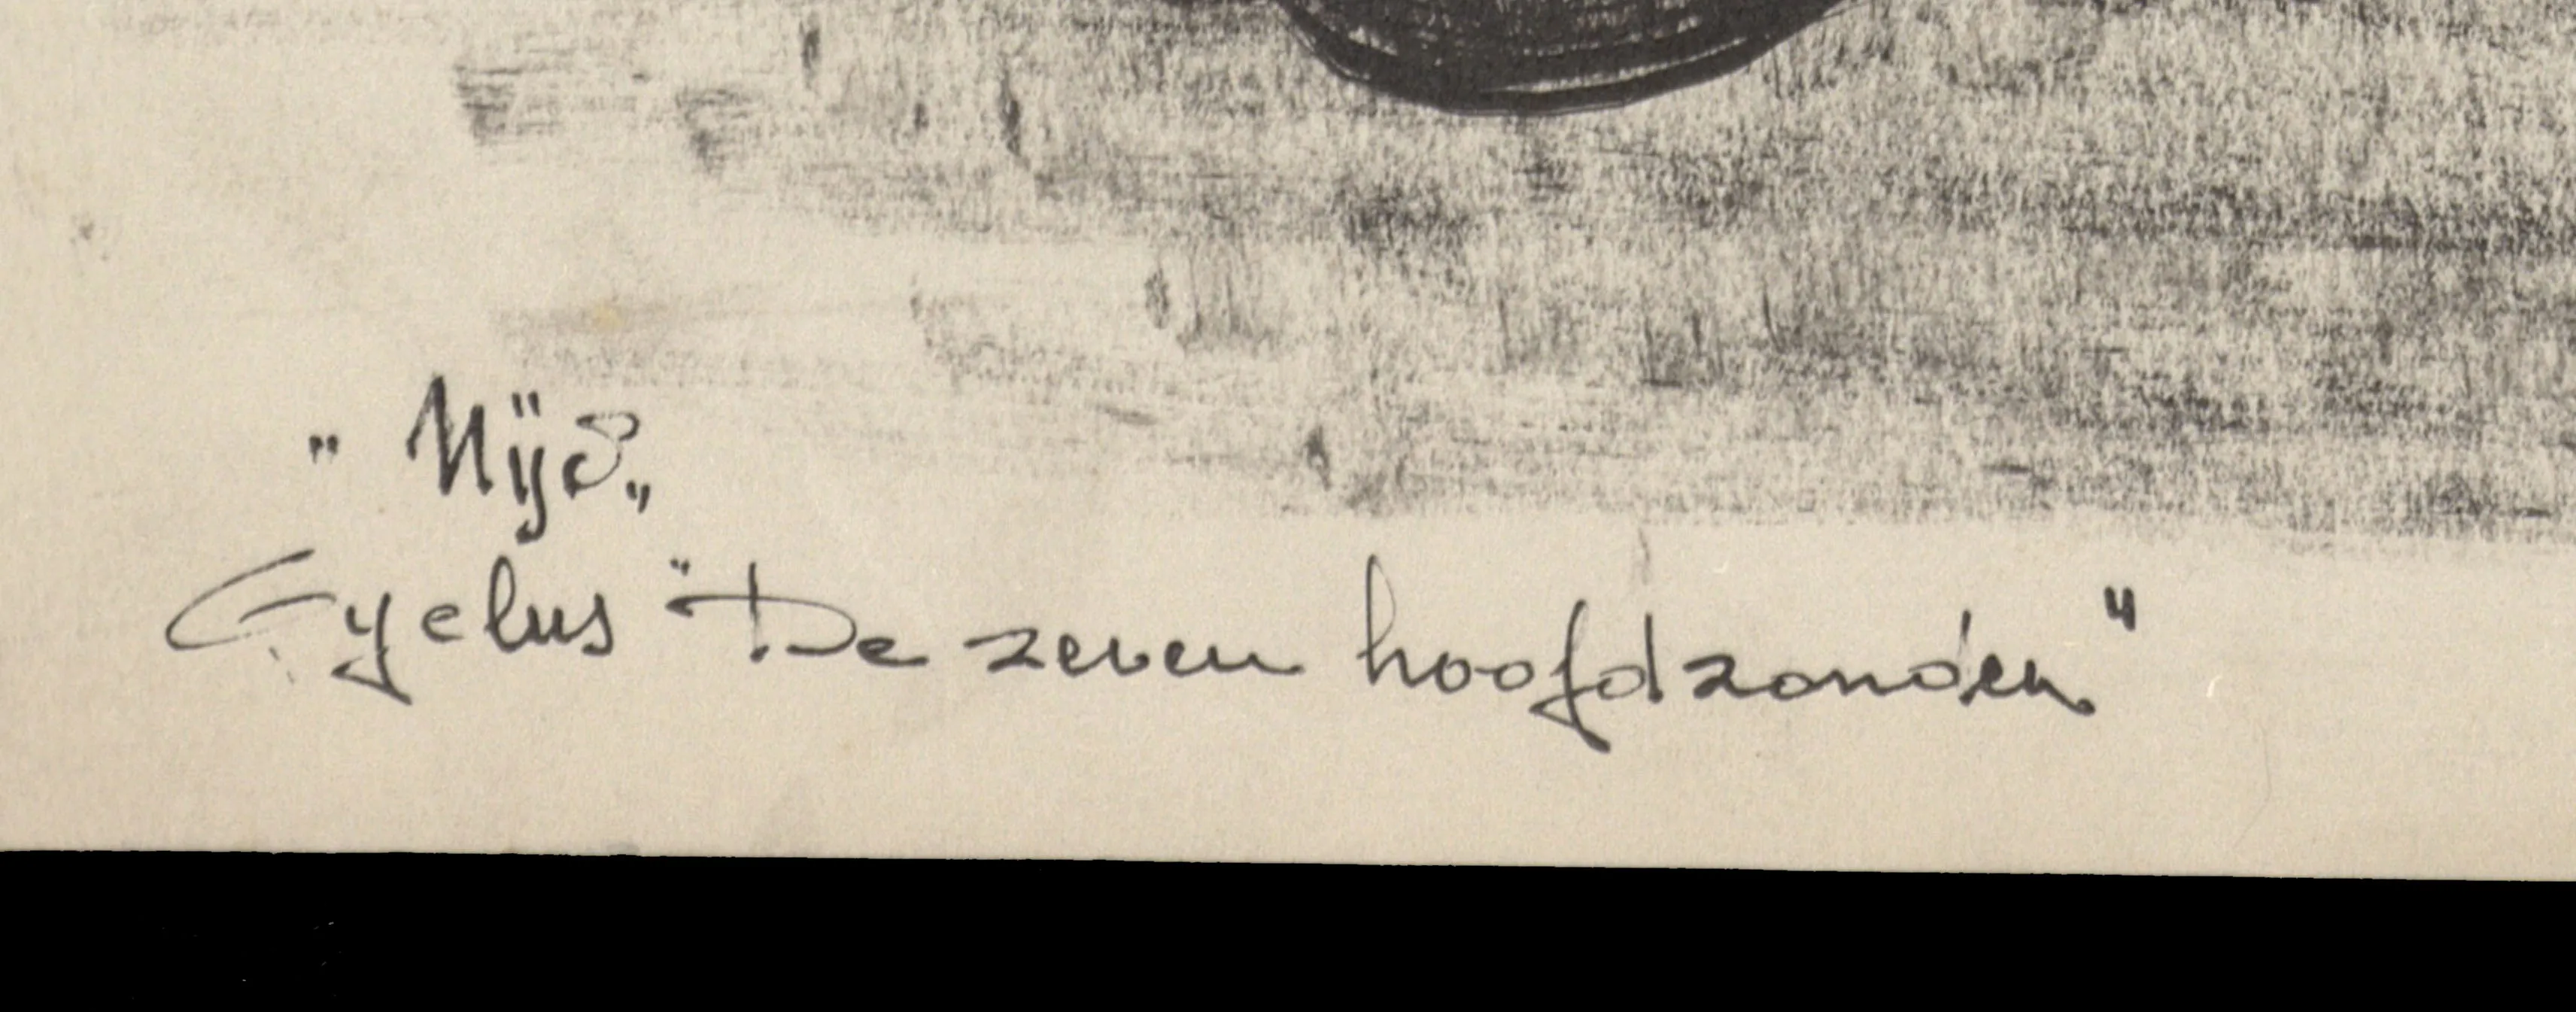 "Nijd"
Cyclus "De zeven hoofdzonden"